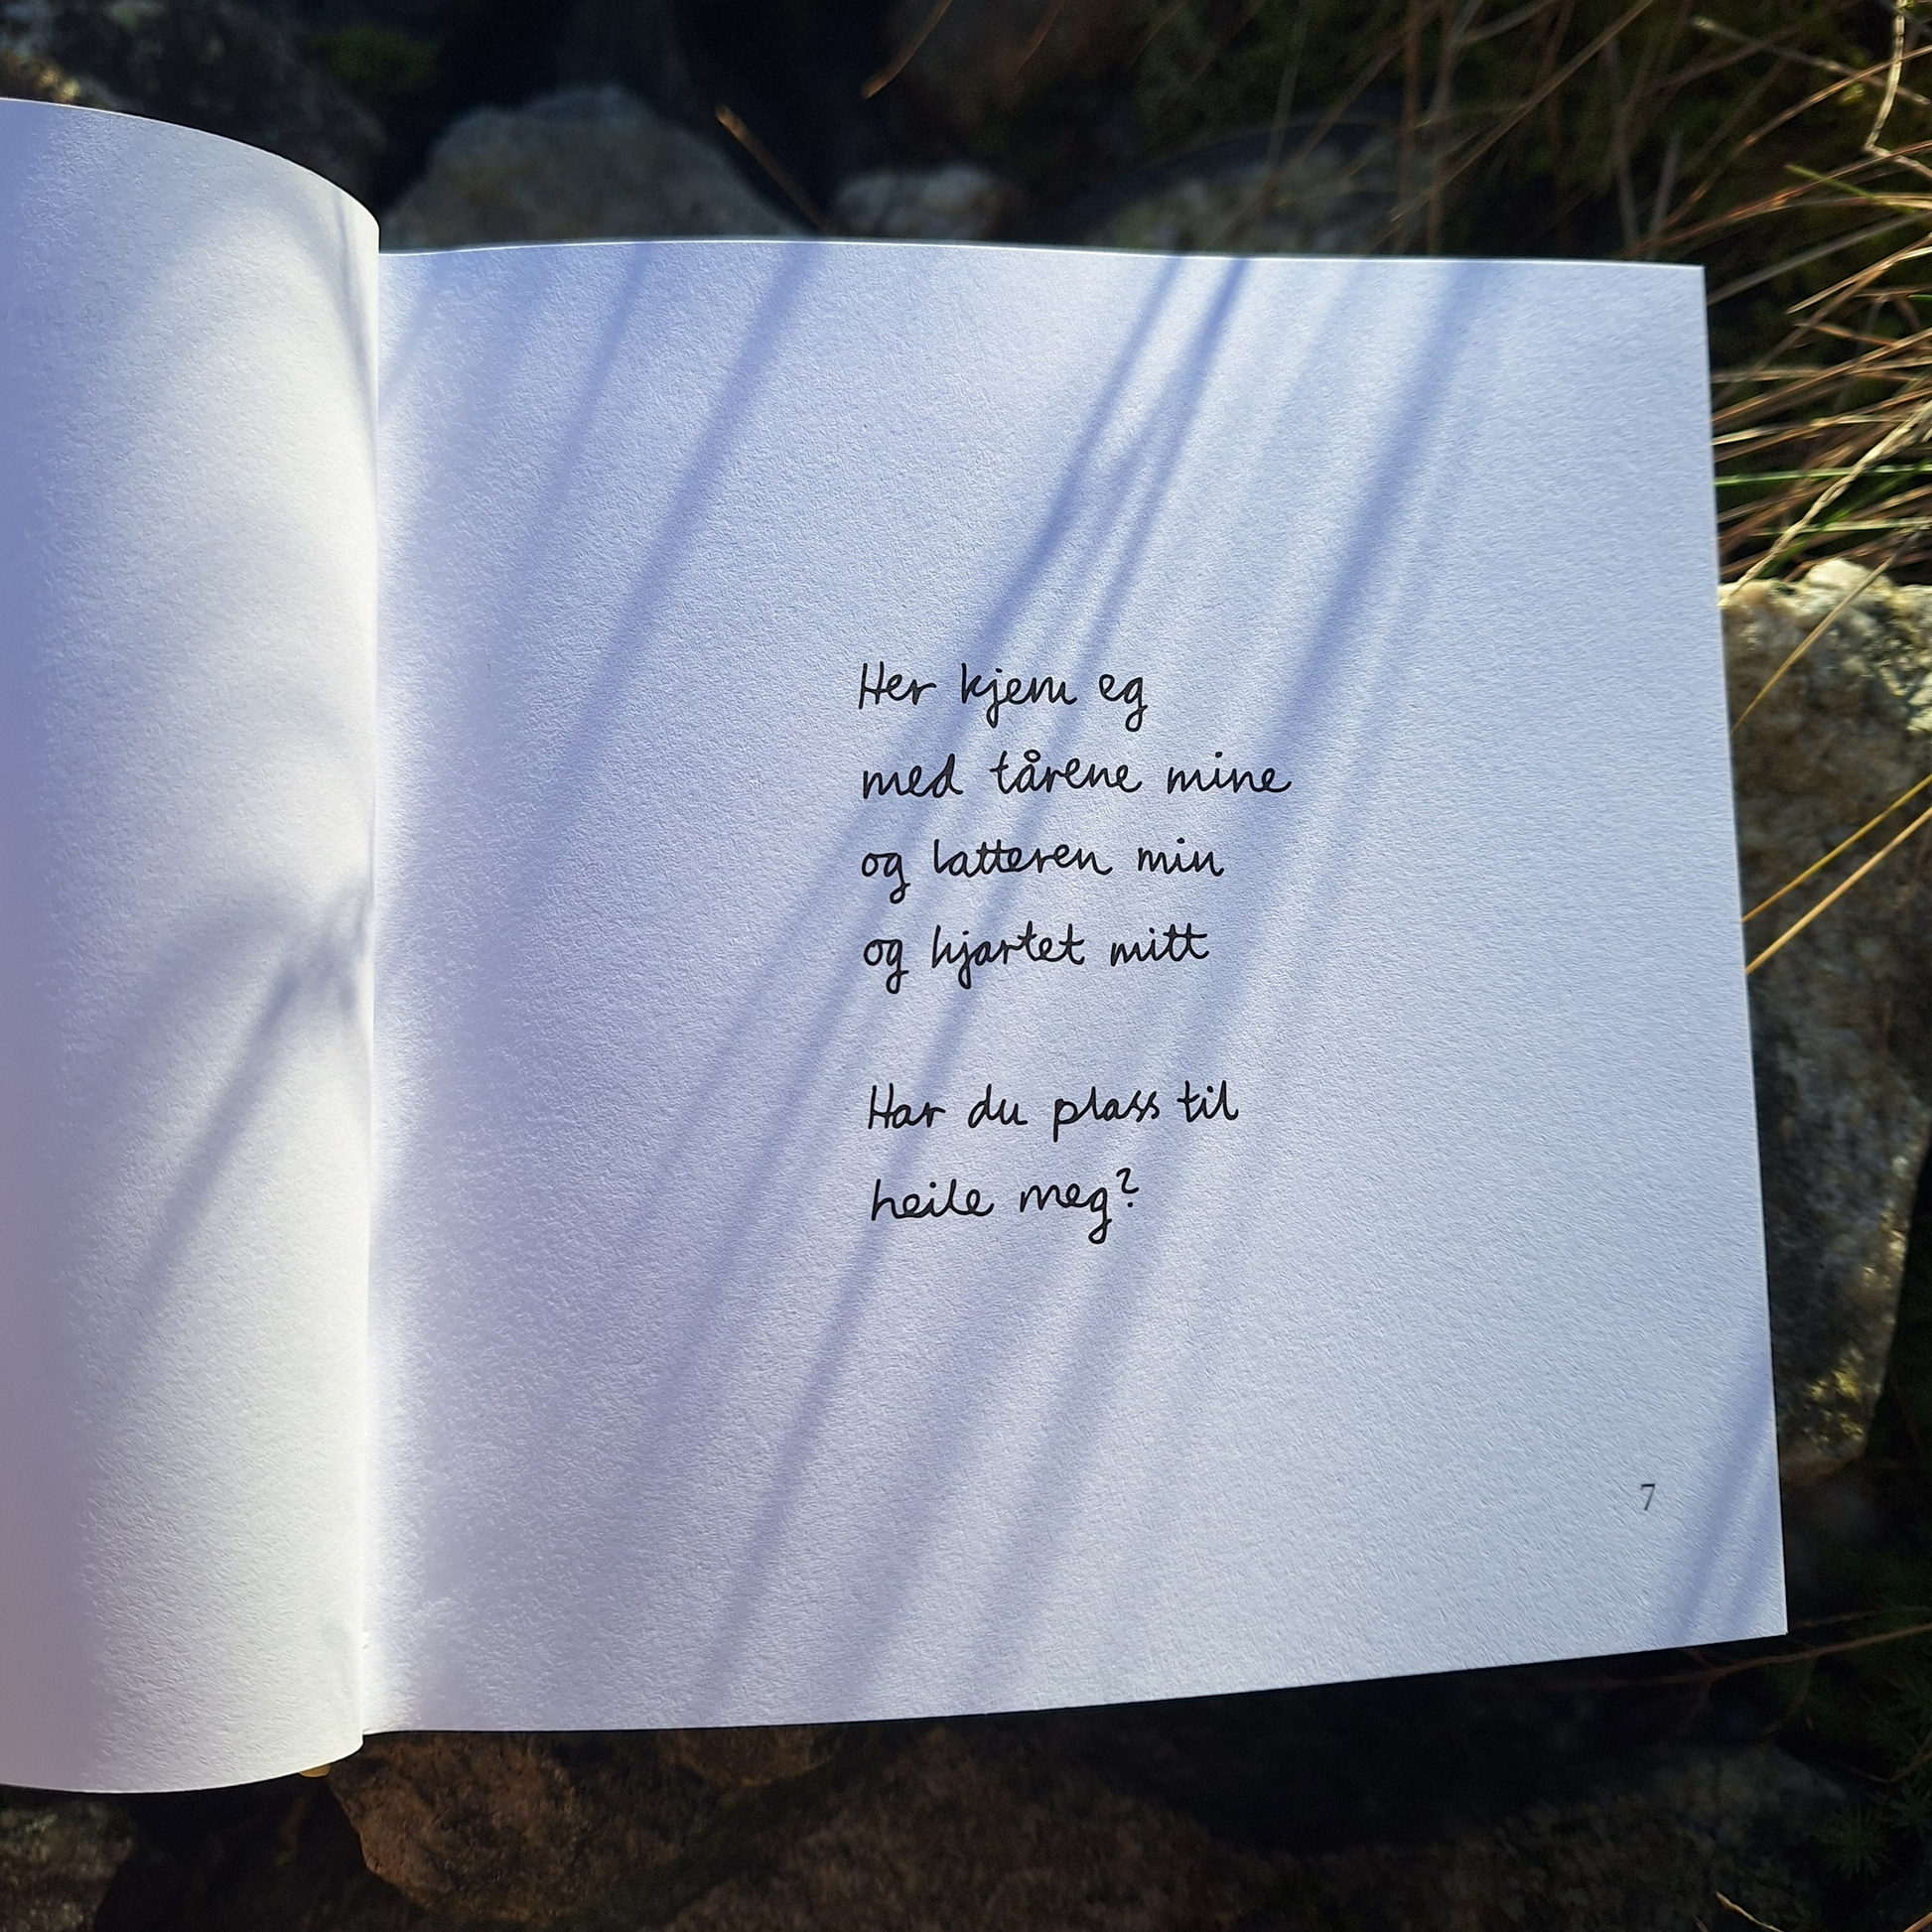 Her kjem eg
med tårene mine
og latteren min
og hjartet mitt
Har du plass til
heile meg?
7